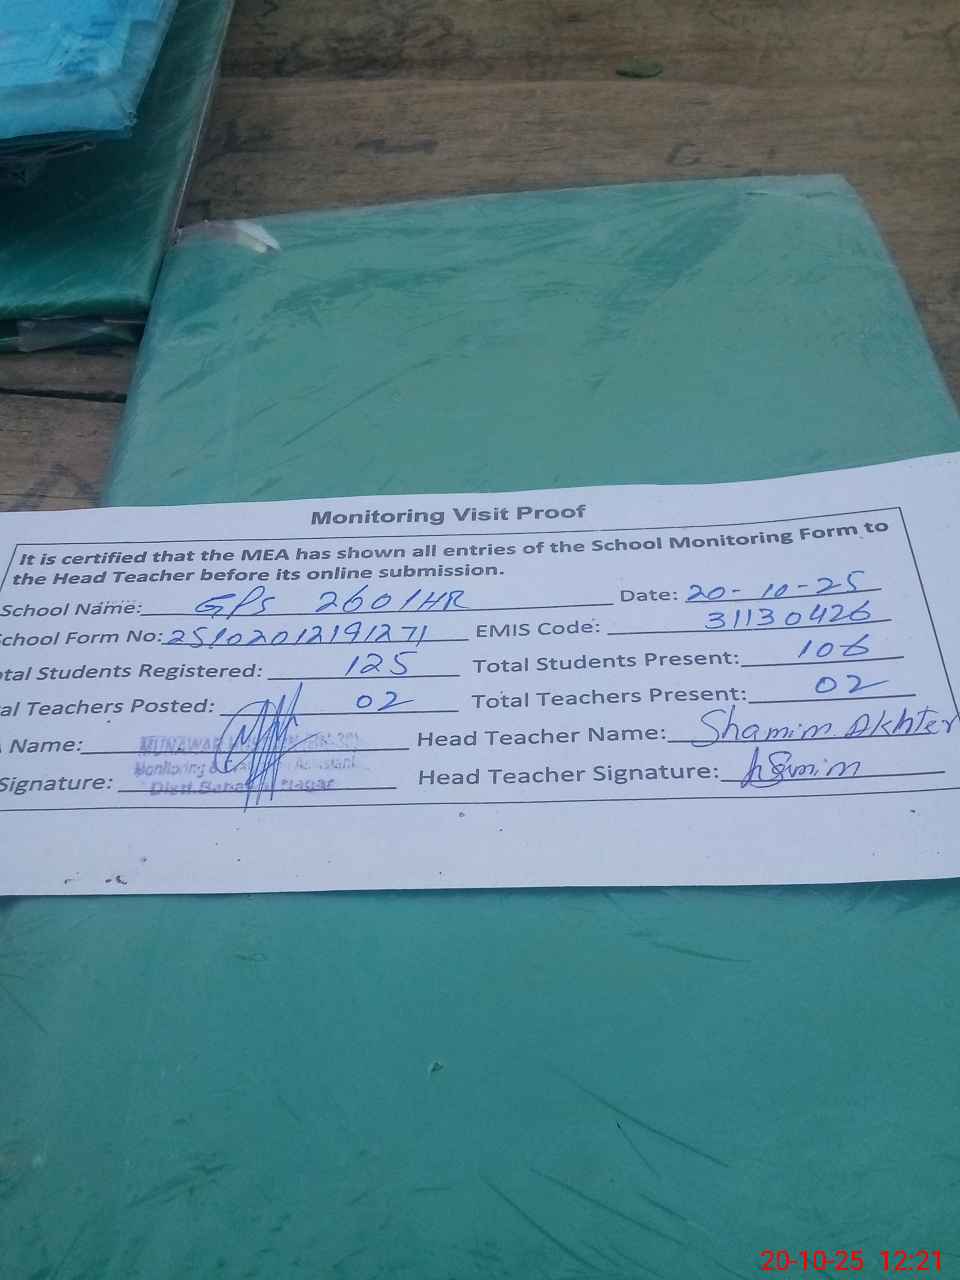 Monitoring Visit Proof
It is certified that the MEA has shown all entries of the School Monitoring Form to
the Head Teacher before its online submission.
School Name: GPS 260/HR Date: 20-10-25
School Form No: 25102012191271 EMIS Code: 31130426
otal Students Registered: 125 Total Students Present: 106
al Teachers Posted: 02 Total Teachers Present: 02
Name: Head Teacher Name: Shamim Akhter
Monitoring & Assistant
Signature: Distt. Nagar Head Teacher Signature:
20-10-25 12:21